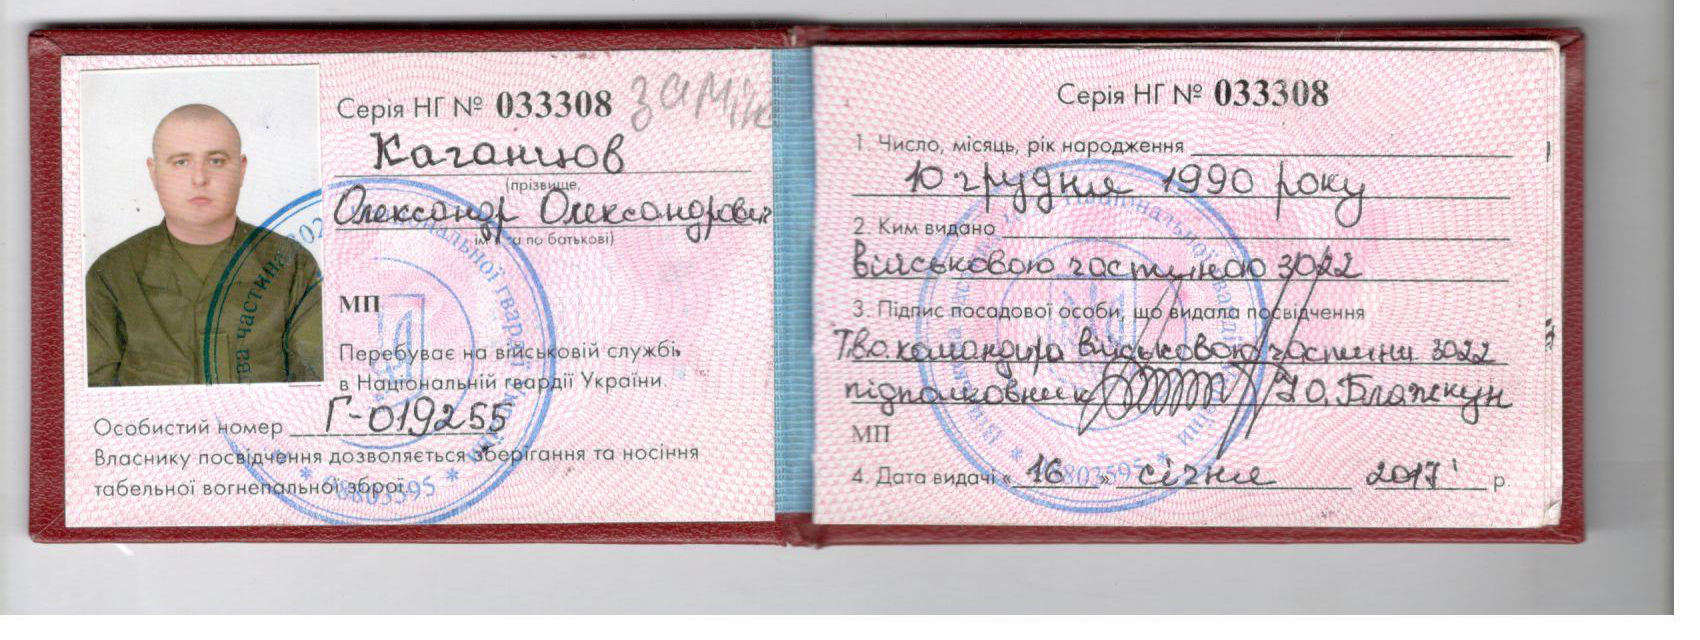 Серія НГ № 033308 заміж
Каганцов
(прізвище,
Олександр Олександрович
ім'я та по батькові)
МП
Перебуває на військовій службі
в Національній гвардії України.
Особистий номер Г-019255
Власнику посвідчення дозволяється зберігання та носіння
табельної вогнепальної зброї.
Серія НГ № 033308
1. Число, місяць, рік народження
10 грудня 1990 року
2. Ким видано
військовою частиною 3022
3. Підпис посадової особи, що видала посвідчення
Т.в.о. командира військової частини 3022
підполковник Ю.О.
МП
4. Дата видачі « 16 » січня 2017 р.
08803595